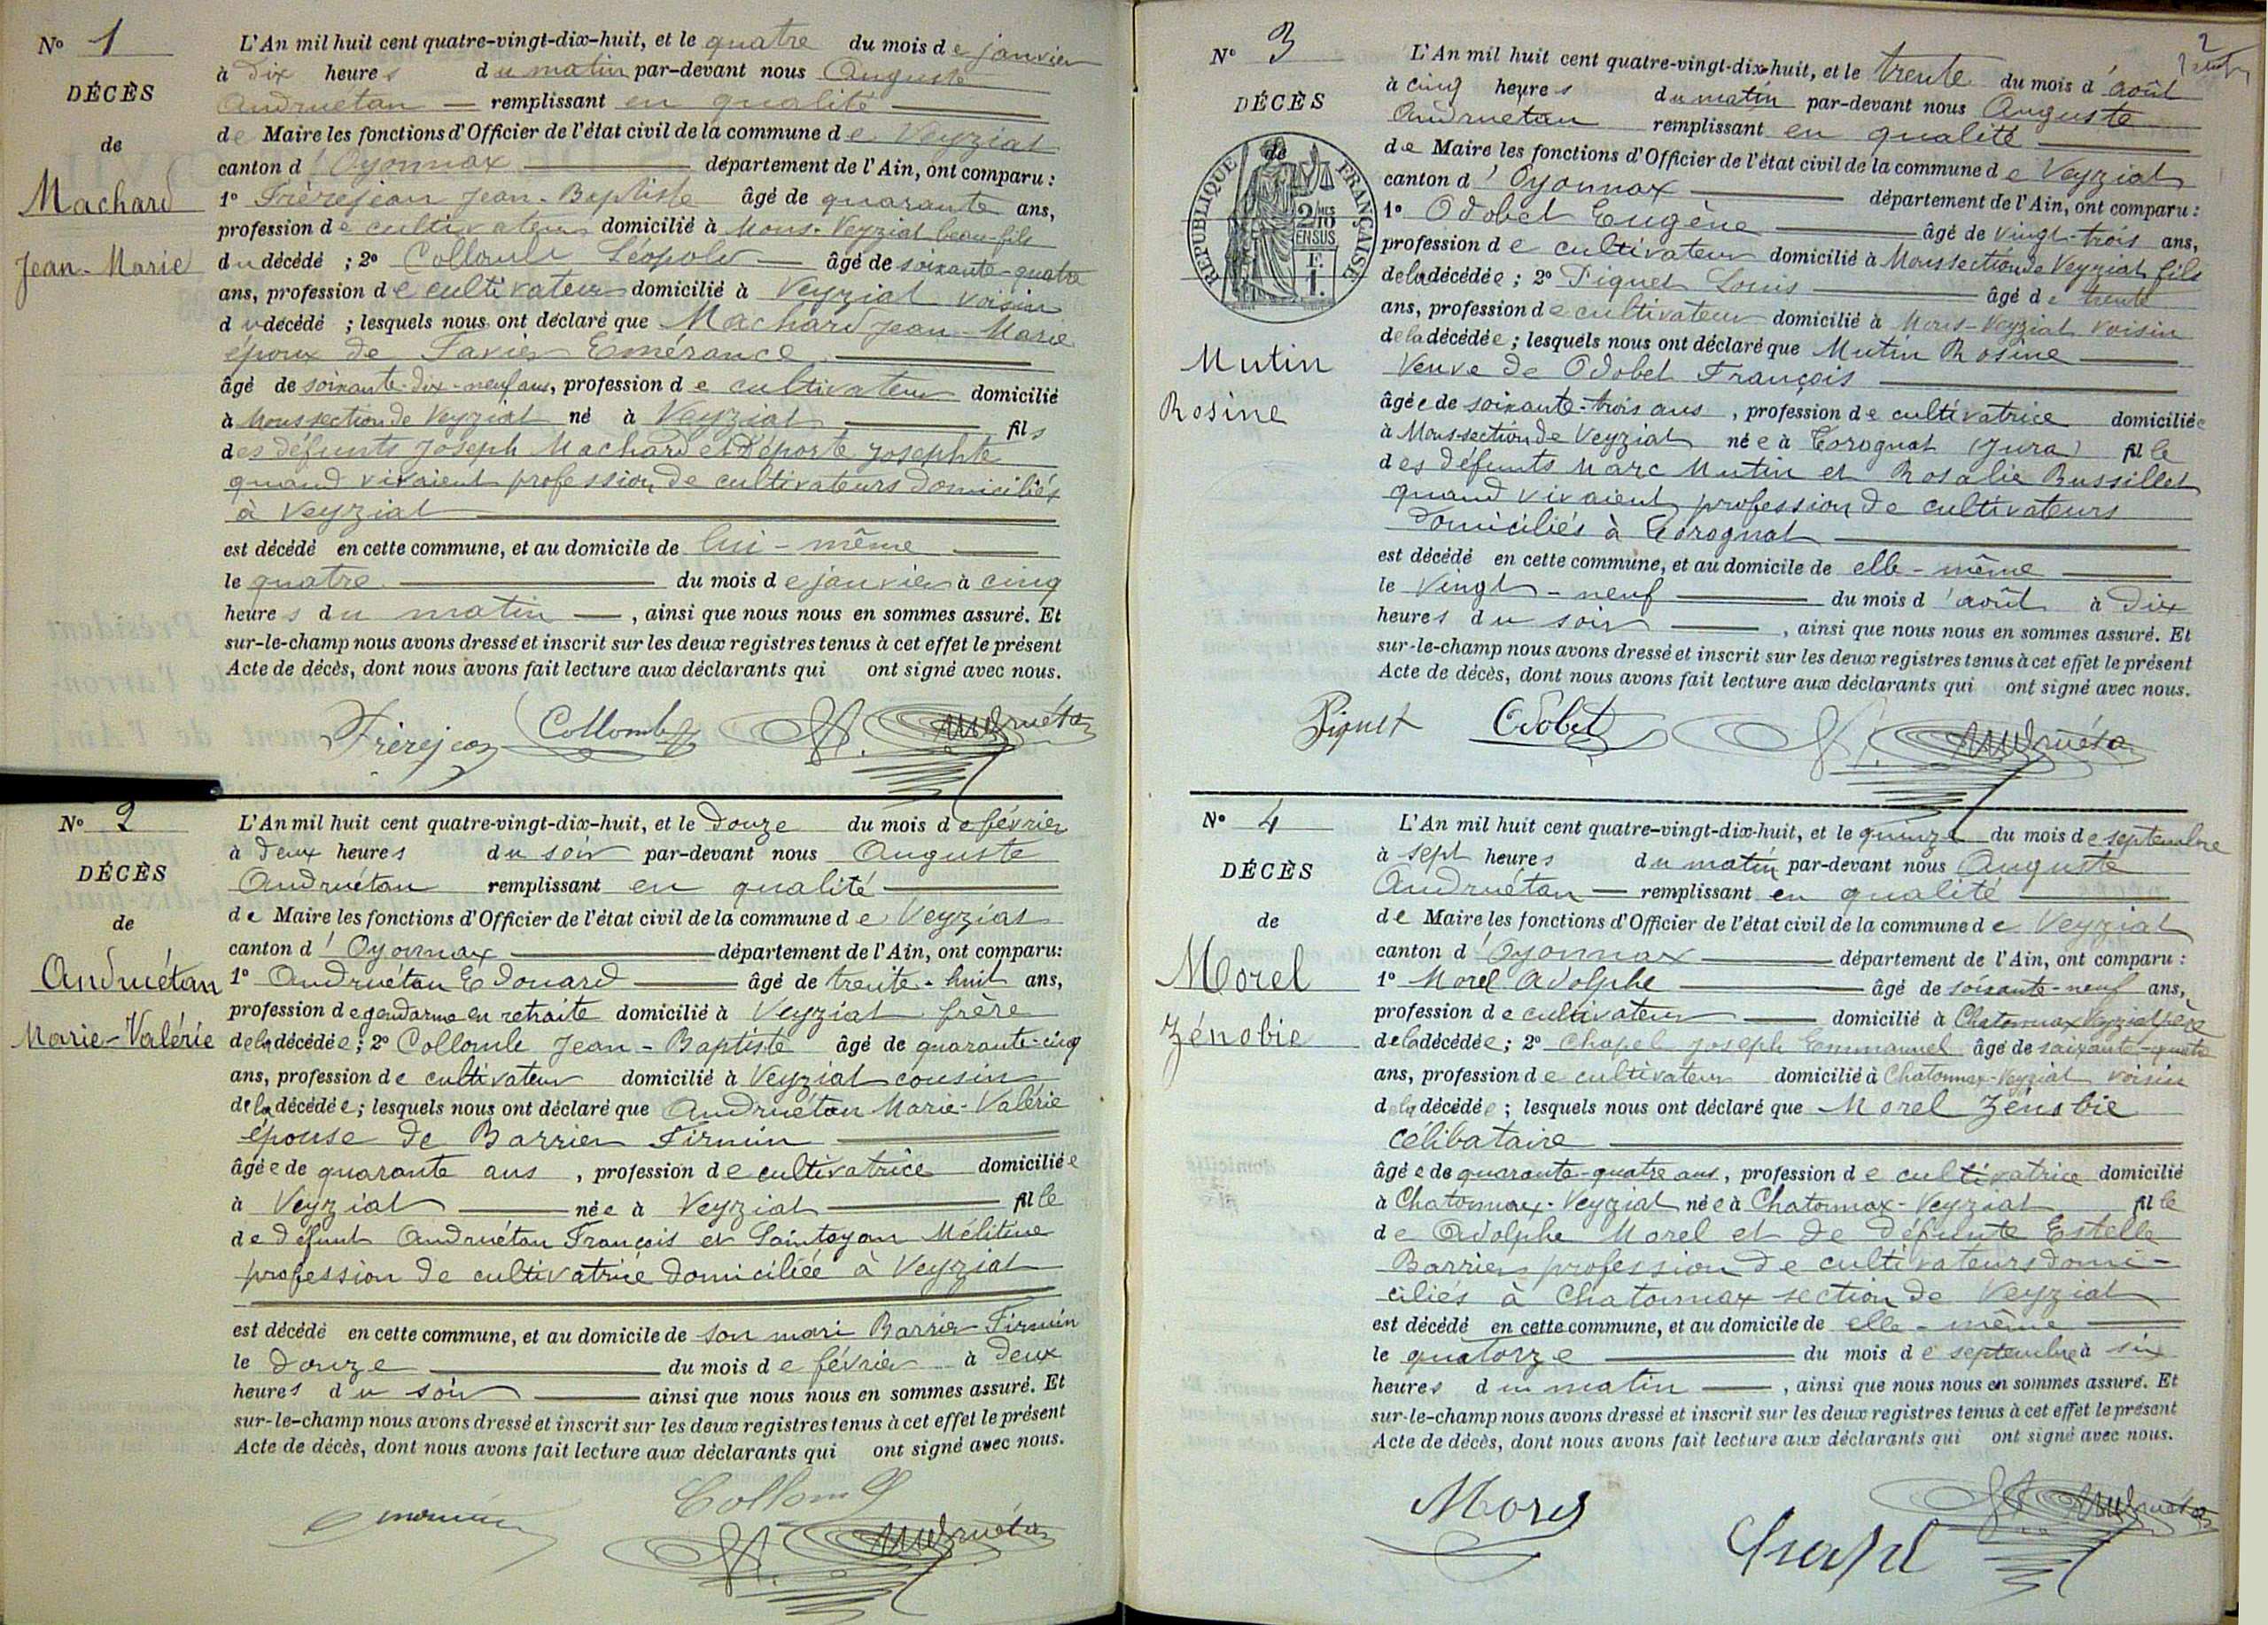 N° 1
DÉCÈS
de
Machard
Jean-Marie
L'An mil huit cent quatre-vingt-dix-huit, et le quatre du mois de janvier
à dix heures du matin par-devant nous Auguste
Andruétan — remplissant en qualité
de Maire les fonctions d'Officier de l'état civil de la commune de Veyziat
canton d'Oyonnax département de l'Ain, ont comparu :
1° Frèrejean Jean-Baptiste âgé de quarante ans,
profession de cultivateur domicilié à Mons-Veyziat beau-fils
du décédé ; 2° Collomb Léopold — âgé de soixante-quatre
ans, profession de cultivateur domicilié à Veyziat voisin
du décédé ; lesquels nous ont déclaré que Machard Jean-Marie
époux de Favier Emérance
âgé de soixante-dix-neuf ans, profession de cultivateur domicilié
à Mons section de Veyziat né à Veyziat fils
des défunts Joseph Machard et Déporte Josephte
quand vivaient profession de cultivateurs domiciliés
à Veyziat
est décédé en cette commune, et au domicile de lui-même
le quatre du mois de janvier à cinq
heures du matin —, ainsi que nous nous en sommes assuré. Et
sur-le-champ nous avons dressé et inscrit sur les deux registres tenus à cet effet le présent
Acte de décès, dont nous avons fait lecture aux déclarants qui ont signé avec nous.
Frèrejean Collomb Andruétan
N° 2
DÉCÈS
de
Andruétan
Marie-Valérie
L'An mil huit cent quatre-vingt-dix-huit, et le douze du mois de février
à deux heures du soir par-devant nous Auguste
Andruétan remplissant en qualité
de Maire les fonctions d'Officier de l'état civil de la commune de Veyziat
canton d'Oyonnax département de l'Ain, ont comparu:
1° Andruétan Edouard âgé de trente-huit ans,
profession de gendarme en retraite domicilié à Veyziat frère
de la décédée; 2° Collomb Jean-Baptiste âgé de quarante-cinq
ans, profession de cultivateur domicilié à Veyziat cousin
de la décédée; lesquels nous ont déclaré que Andruétan Marie-Valérie
épouse de Barrier Firmin
âgée de quarante ans, profession de cultivatrice domiciliée
à Veyziat née à Veyziat fille
de défunt Andruétan François et Saintoyan Mélitine
profession de cultivatrice domiciliée à Veyziat
est décédé en cette commune, et au domicile de son mari Barrier Firmin
le douze du mois de février à deux
heures du soir — ainsi que nous nous en sommes assuré. Et
sur-le-champ nous avons dressé et inscrit sur les deux registres tenus à cet effet le présent
Acte de décès, dont nous avons fait lecture aux déclarants qui ont signé avec nous.
Collomb
Andruétan
2
N° 3
DÉCÈS
de
RÉPUBLIQUE FRANÇAISE
2/10 MES
EN SUS
F.
1.
Mutin
Rosine
L'An mil huit cent quatre-vingt-dix-huit, et le trente du mois d'août
à cinq heures du matin par-devant nous Auguste
Andruetan remplissant en qualité
de Maire les fonctions d'Officier de l'état civil de la commune de Veyziat
canton d'Oyonnax département de l'Ain, ont comparu :
1° Odobet Eugène âgé de vingt-trois ans,
profession de cultivateur domicilié à Mons section de Veyziat fils
de la décédée ; 2° Piquet Louis âgé de trente
ans, profession de cultivateur domicilié à Mons-Veyziat voisin
de la décédée ; lesquels nous ont déclaré que Mutin Rosine
Veuve de Odobet François
âgée de soixante-trois ans, profession de cultivatrice domiciliée
à Mons-section de Veyziat née à Corognat (Jura) fille
des défunts Marc Mutin et Rosalie Bussillet
quand vivaient profession de cultivateurs
domiciliés à Corognat
est décédé en cette commune, et au domicile de elle-même
le vingt-neuf du mois d'août à dix
heures du soir —, ainsi que nous nous en sommes assuré. Et
sur-le-champ nous avons dressé et inscrit sur les deux registres tenus à cet effet le présent
Acte de décès, dont nous avons fait lecture aux déclarants qui ont signé avec nous.
Piquet Odobet Andruétan
N° 4
DÉCÈS
de
Morel
Zénobie
L'An mil huit cent quatre-vingt-dix-huit, et le quinze du mois de septembre
à sept heures du matin par-devant nous Auguste
Andruétan — remplissant en qualité
de Maire les fonctions d'Officier de l'état civil de la commune de Veyziat
canton d'Oyonnax département de l'Ain, ont comparu :
1° Morel Adolphe âgé de soixante-neuf ans,
profession de cultivateur — domicilié à Chatonnax Veyziat père
de la décédée; 2° Chapel Joseph Emmanuel âgé de soixante-quatre
ans, profession de cultivateur domicilié à Chatonnax-Veyziat voisin
de la décédée ; lesquels nous ont déclaré que Morel Zénobie
célibataire
âgée de quarante-quatre ans, profession de cultivatrice domicilié
à Chatonnax-Veyziat née à Chatonnax-Veyziat fille
de Adolphe Morel et de défunte Estelle
Barrier profession de cultivateurs domi-
ciliés à Chatonnax section de Veyziat
est décédé en cette commune, et au domicile de elle-même
le quatorze du mois de septembre à six
heures du matin —, ainsi que nous nous en sommes assuré. Et
sur-le-champ nous avons dressé et inscrit sur les deux registres tenus à cet effet le présent
Acte de décès, dont nous avons fait lecture aux déclarants qui ont signé avec nous.
Morel Chapel Andruétan